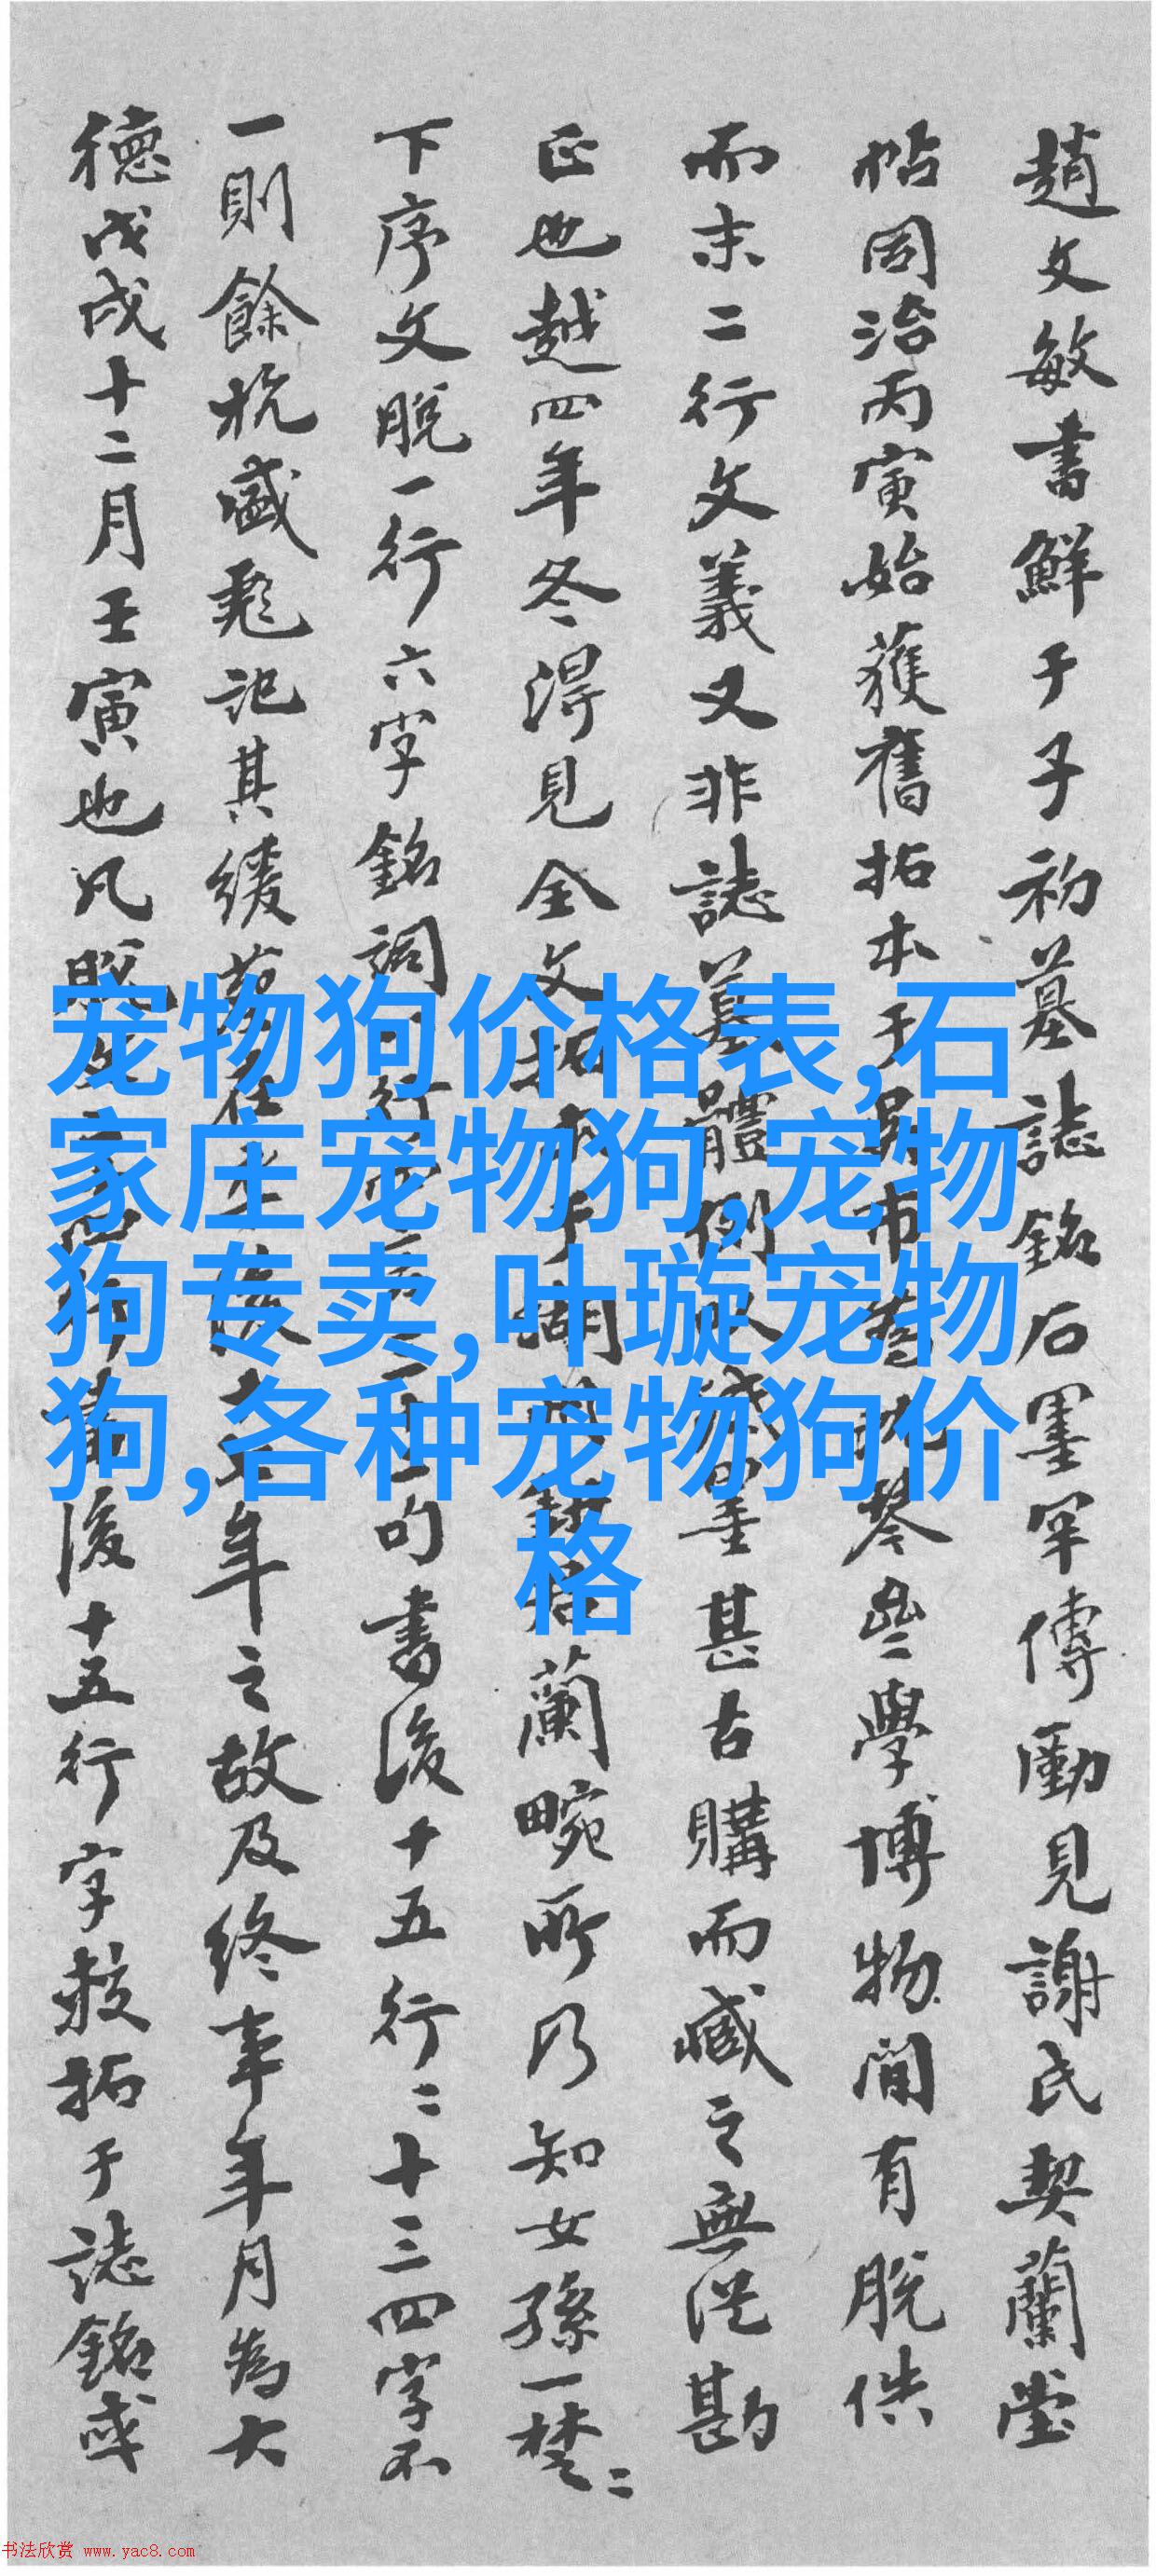 趙文敏書鮮于子初墓誌銘石墨罕傳勳見謝氏契蘭堂
帖同治丙寅始獲舊拓本于吳市為琴學博物間有脫佚
而末二行文義又非誌墓體例墨甚古購而臧之無從勘
正也越四年冬得見全文拓本于湖蘭畹所乃知女孫一楚二
下序文脫一行六字銘詞行句書後十五行二十三四字不
一則餘杭盛彪記其緩葬年之故及終事年月為大
德戊戌十二月壬寅也凡脫後十五行字裝拓于誌銘或
宠物狗价格表,石
家庄宠物狗,宠物
狗专卖,叶璇宠物
狗,各种宠物狗价
格
书法欣赏 www.yac8.com